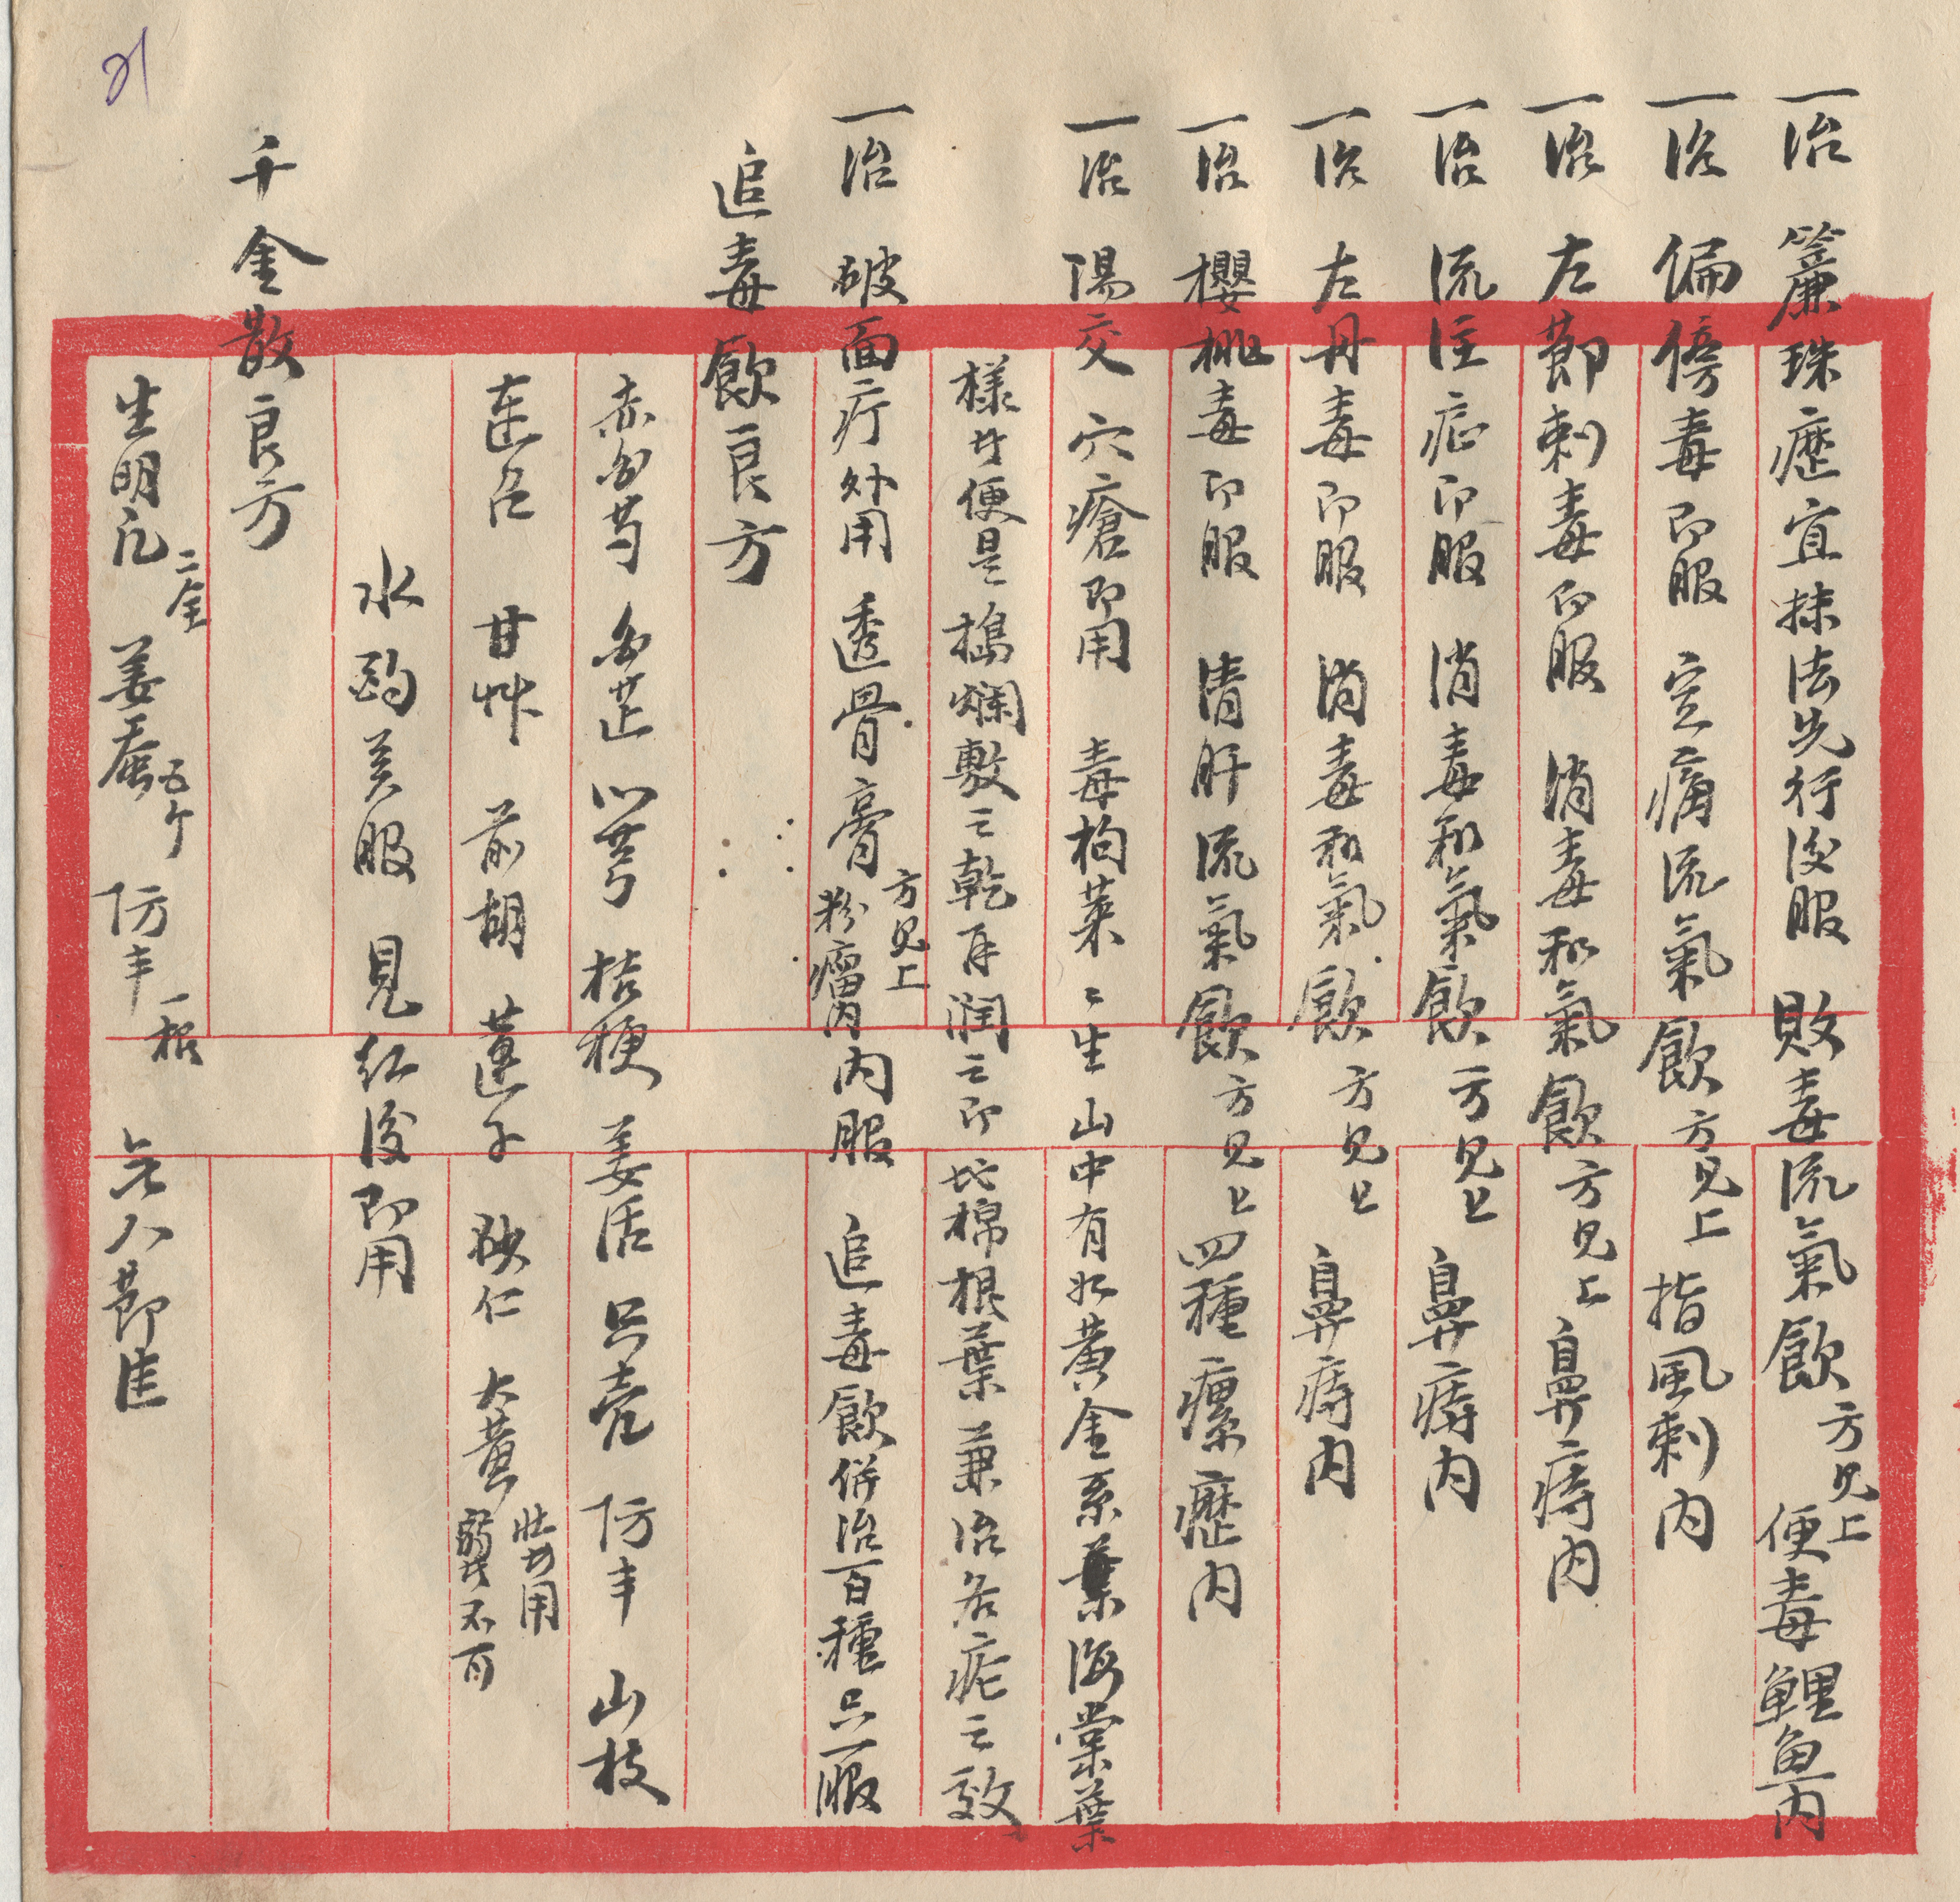 一治 簾珠癧宜抹法先行後服 敗毒流氣飲 方見上 便毒鯉魚內
一治 偏傍毒即服 定痛流氣飲 方見上 指風刺內
一治 左節刺毒即服 消毒和氣飲 方見上 鼻痔內
一治 流注症即服 消毒和氣飲 方見上 鼻痔內
一治 左丹毒即服 消毒和氣飲 方見上 鼻痔內
一治 櫻桃毒即服 清肝流氣飲 方見上 四種瘰癧內
一治 陽交穴瘡即用 毒枸菜〻生山中有如黃金系葉海棠葉
樣者便是搗爛敷之乾再潤之即 棉根葉兼治各症之效
一治 破面疔外用 透骨膏 方見上 粉瘤內 內服 追毒飲併治百種只一服
追毒飲良方
赤芍 白芷 川芎 桔梗 姜活 只壳 防丰 山枝
連召 甘艸 前胡 蓮子 大黃 壯者用 弱者不可
水酌美服 見紅後即用
千金散良方
生明凡 二金 姜蚕 五个 防丰 一根
21